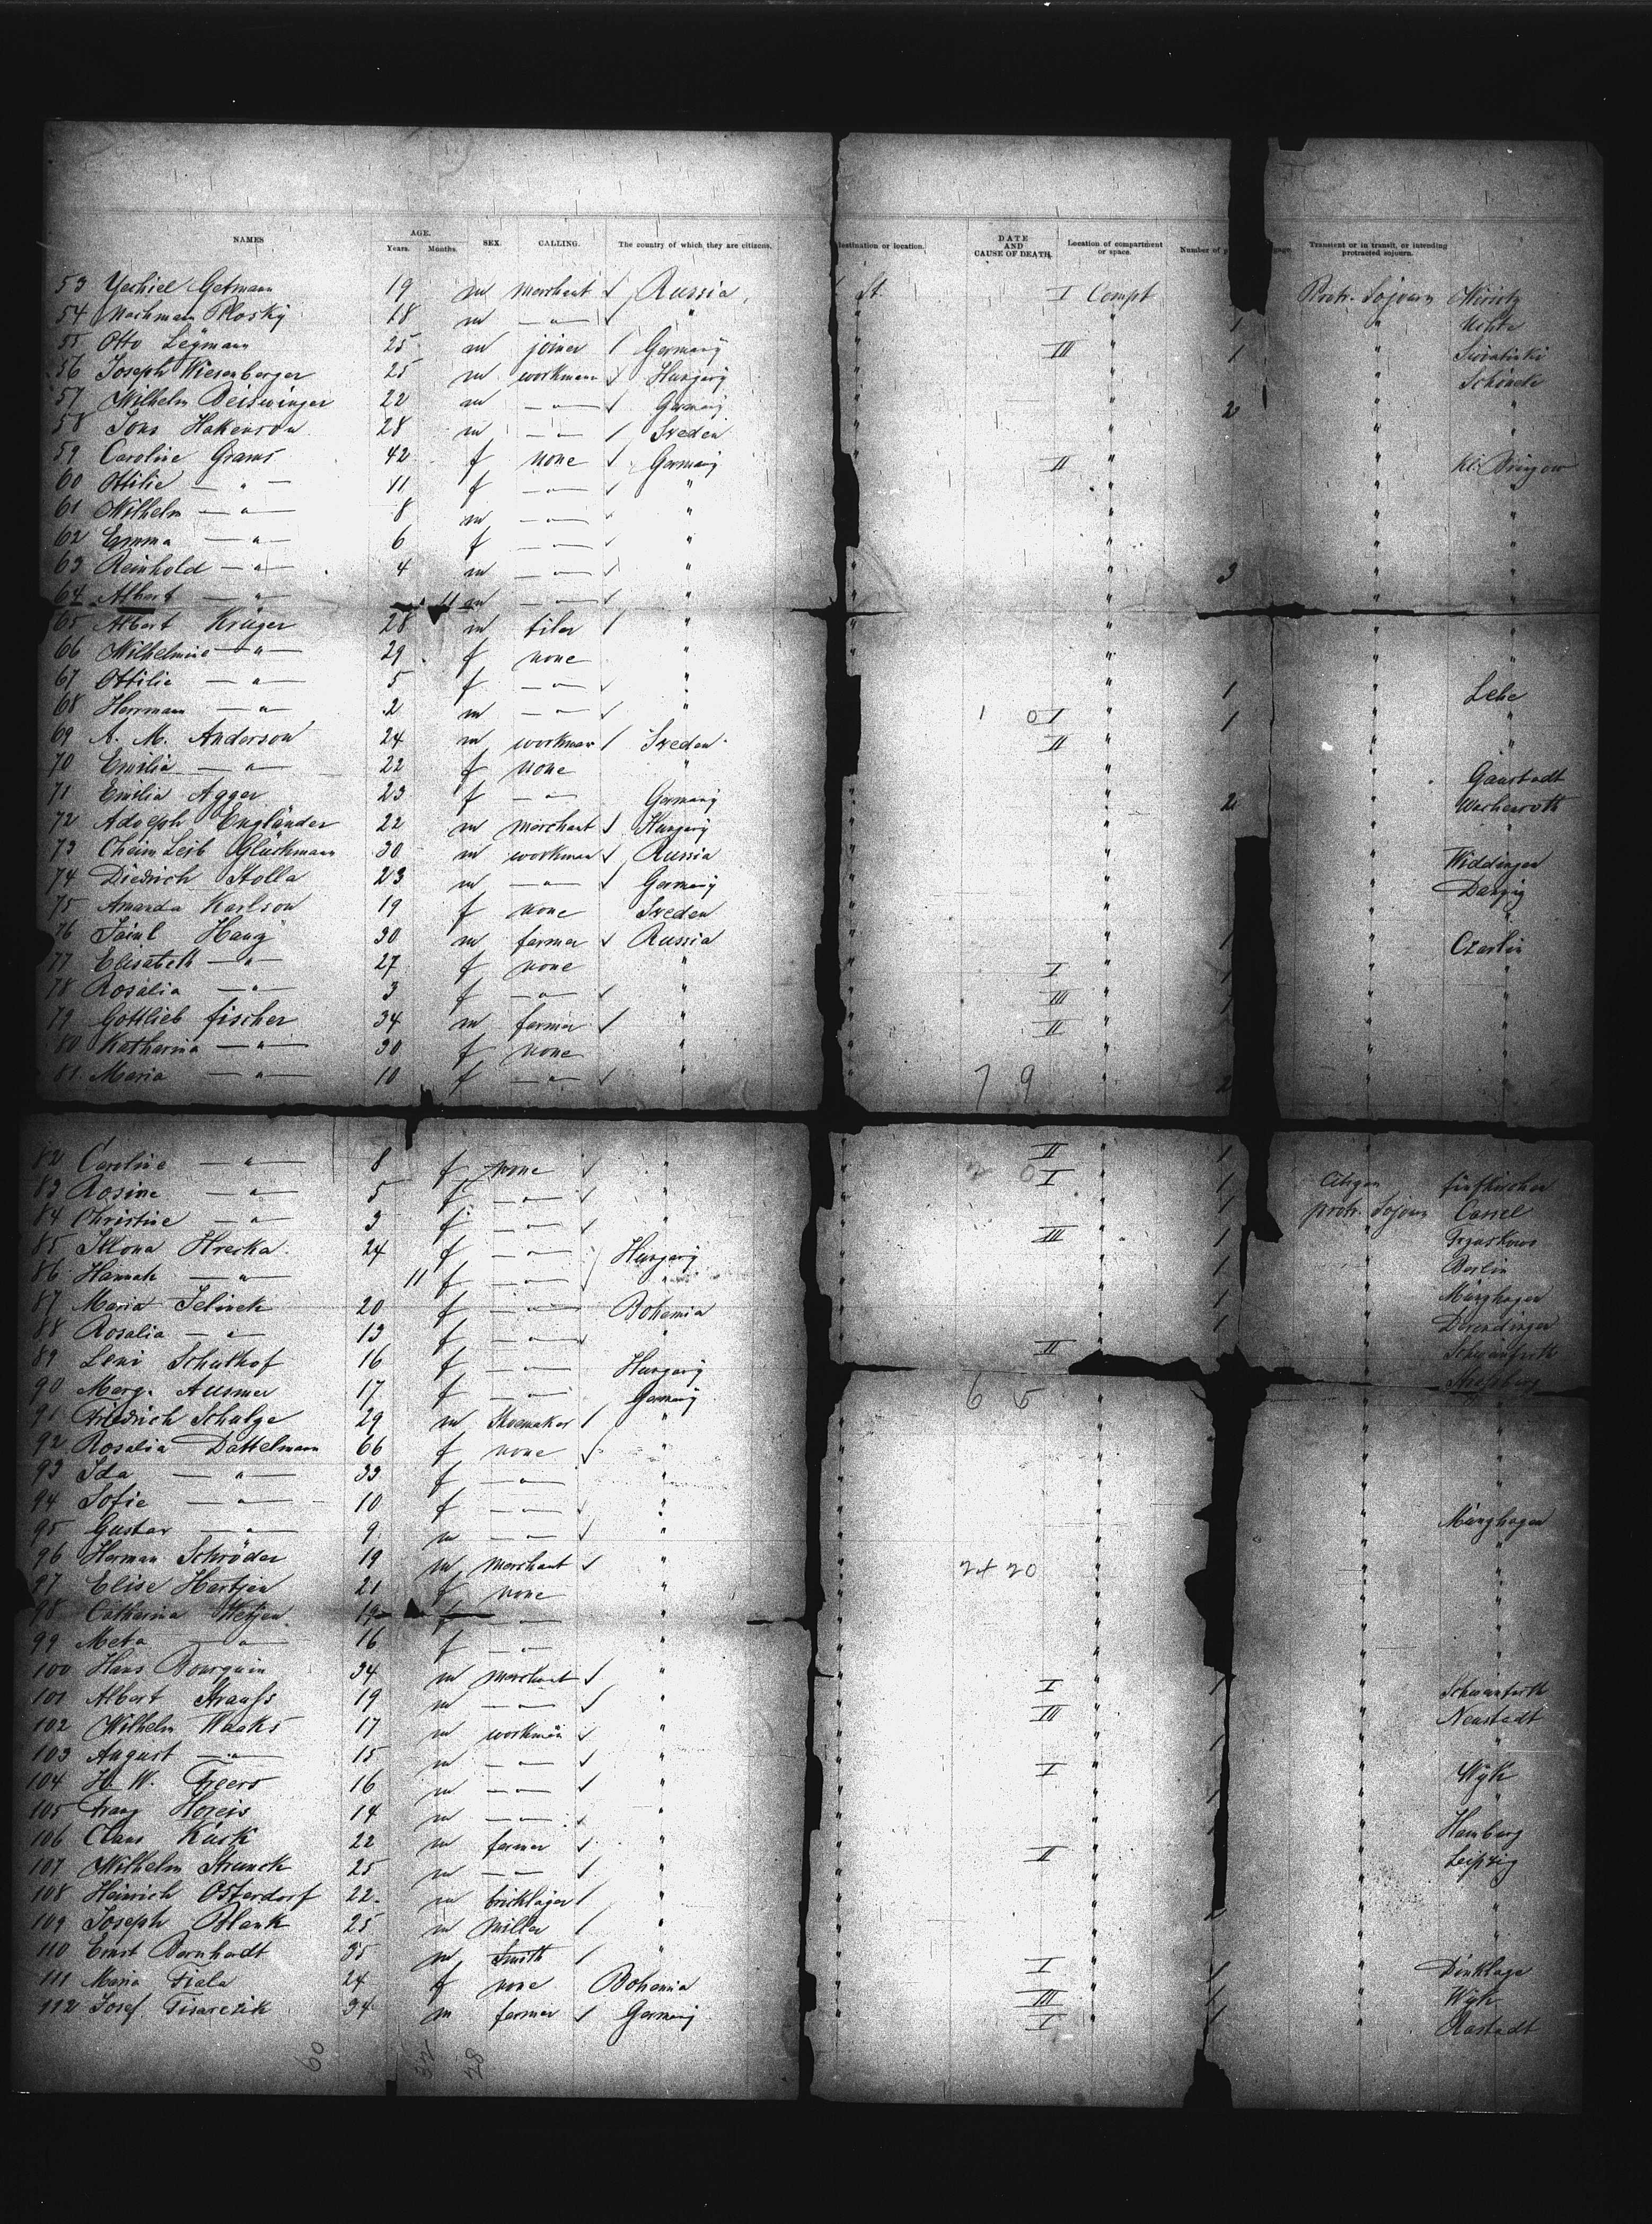 NAMES AGE. Years. Months. SEX. CALLING. The country of which they are citizens. Destination or location. DATE AND CAUSE OF DEATH. Location of compartment or space. Number of Transient or in transit, or intending protracted sojourn.
53 Yechiel Getmann 19 m merchant Russia St. I Compt Protr. Sojourn
54 Nachman Plosky 18 m — " — " " " 1 "
55 Otto 25 m joiner Germany " III " 1 "
56 Joseph Wiesenberger 25 m workmann Hungary " " " Schöneck
57 Wilhelm 22 m — " — Germany " " 2 " "
58 Jons Hakenson 28 m — " — Sweden " " " "
59 Caroline Grams 42 f none Germany " II " "
60 Ottilie — " — 11 f — " — " " " " "
61 Wilhelm — " — 8 m — " — " " " " "
62 Emma — " — 6 f — " — " " " " "
63 Reinhold — " — 4 m — " — " " " 3 " "
64 Albert — " — 11 m — " — " " " " "
65 Albert Krüger 28 m tiler " " " " "
66 Wilhelmine — " — 29 f none " " " " "
67 Ottilie — " — 5 f — " — " " " 1 " Lehe
68 Herrmann — " — 2 m — " — " " 1 0 I " 1 " "
69 A. M. Anderson 24 m workman Sweden " II " " "
70 Emilia — " — 22 f none " " " " Ganstadt
71 Emilia Agger 23 f — " — Germany " " 2 " Wachenroth
72 Adolph Engländer 22 m merchant Hungary " " " "
73 Chaim Leib Glückmann 30 m workman Russia " " " Widdingen
74 Diedrich Stolla 23 m — " — Germany " " " Danzig
75 Amanda Karlson 19 f none Sweden " " " "
76 Haug 30 m farmer Russia " " 1 " Czarlin
77 Elisabeth — " — 27 f none " " I " 1 " "
78 Rosalia — " — 3 f — " — " " III " 1 " "
79 Gottlieb Fischer 34 m farmer " " II " " "
80 Katharina — " — 30 f none " " " " "
81 Maria — " — 10 f — " — " " 7 9 " 2 " "
82 Caroline — " — 8 f none " " II " 1
83 Rosine — " — 5 f — " — " " 2 0 I " 1 Citizen Fünfkirchen
84 Christine — " — 3 f — " — " " " 1 protr. Sojourn Cassel
85 Illona Hreska 24 f — " — Hungary " III " 1 "
86 Hannah — " — 11 f — " — " " " 1 " Berlin
87 Maria Jelinek 20 f — " — Bohemia " " 1 "
88 Rosalia — " — 13 f — " — " " " 1 " Derendingen
89 Leni Schulhof 16 f — " — Hungary " II " " Schweinfurth
90 Marg. Ausmer 17 f — " — Germany " 6 5 " "
91 Friedrich Schulze 29 m Shoemaker " " " " "
92 Rosalia Dattelmann 66 f none " " " " "
93 Ida — " — 33 f — " — " " " " "
94 Sofie — " — 10 f — " — " " " " "
95 Gustav — " — 9 m — " — " " " "
96 Herman Schröder 19 m merchant " " 24 20 " " "
97 Elise Hartjen 21 f none " " " " "
98 Catharina Wetjen 19 f — " — " " " " "
99 Meta — " — 16 f — " — " " " " "
100 Hans Bourquin 34 m merchant " " " " "
101 Albert Strauss 19 m — " — " " I " 1 " Schweinfurth
102 Wilhelm Waaks 17 m workman " " III " " Neustadt
103 August — " — 15 m — " — " " " 1 " "
104 H. W. Freers 16 m — " — " " I " " Wyk
105 Franz Horeis 14 m — " — " " " 1 " "
106 Claus Kück 22 m farmer " " " " Hamburg
107 Wilhelm Strunck 25 m — " — " " II " " Leipzig
108 Heinrich Osterdorf 22 m bricklayer " " " " "
109 Joseph Blank 25 m miller " " " " "
110 Ernst Bernhadt 35 m Smith " " " " "
111 Maria Fiala 24 f none Bohemia " I " 1 " Dinklage
112 Josef 34 m farmer Germany " III " 1 " Wyk
I 1 Rastadt
60 32 28